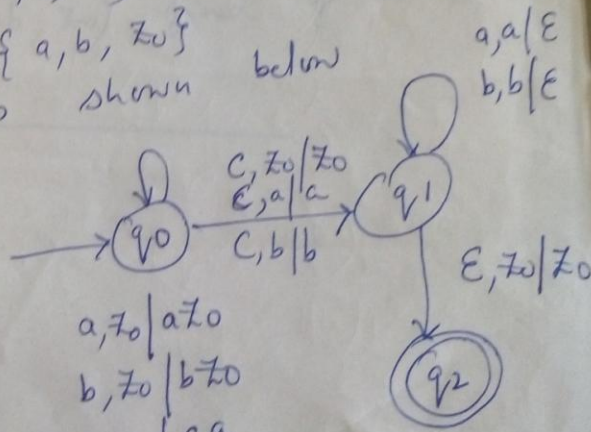 { a, b, z0}
shown below
a,a|ε
b,b|ε
C, z0|z0
ε,a|a
C, b|b
q0
q1
ε, z0|z0
a, z0|az0
b, z0|bz0
q2